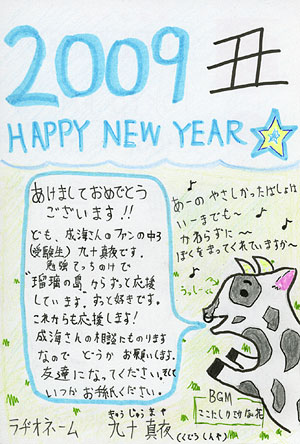 2009 丑
HAPPY NEW YEAR
あけましておめでとう
ございます!!
ども、成海さんのファンの中3
(受験生) 九十真夜です。
勉強そっちのけで
"瑠璃の島"からずっと応援
しています。ずっと好きです。
これからも応援します!
成海さんの相談にものります
なので どうか お願いします。
友達になってください。そして
いつか お手紙ください。
♪
あーの やさしかったばしょは
いーまでも〜
かわらずに〜
ぼくをまってくれていますか〜
♪
うっしー
BGM
ラヂオネーム
きゅう じゅう ま や
九十 真夜